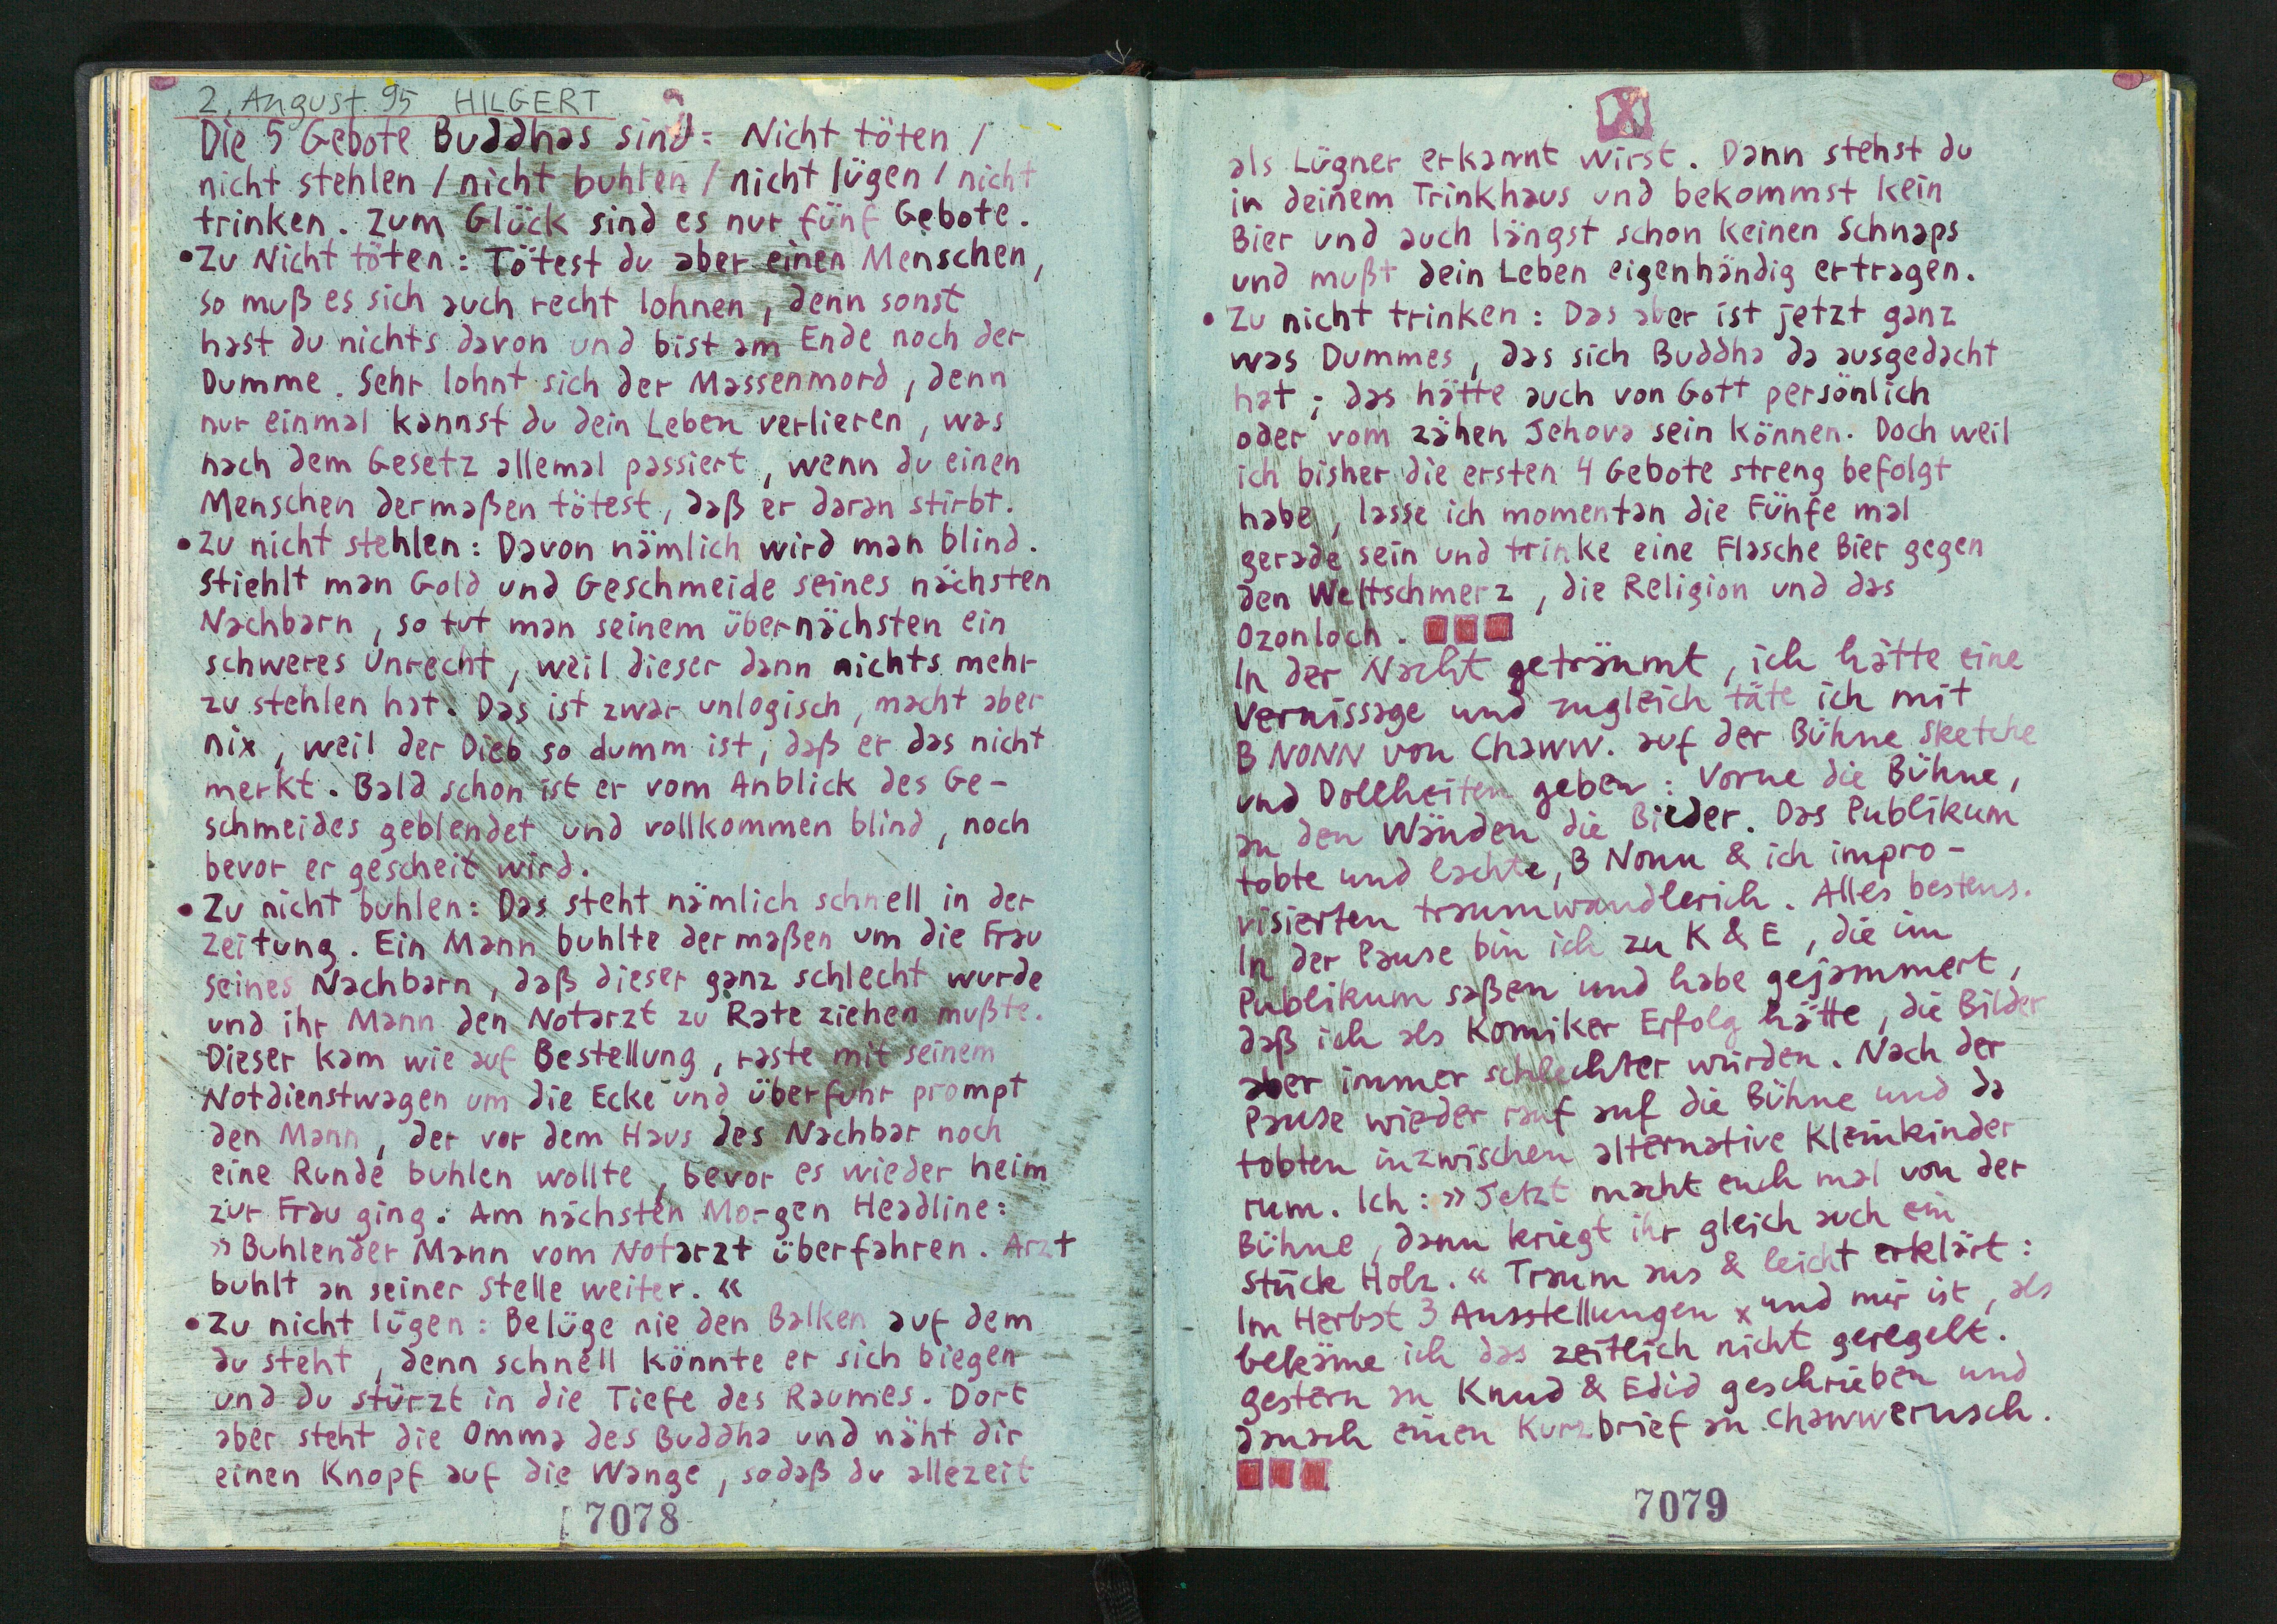 2. August 95 HILGERT
Die 5 Gebote Buddhas sind: Nicht töten /
nicht stehlen / nicht buhlen / nicht lügen / nicht
trinken. Zum Glück sind es nur fünf Gebote.
• Zu Nicht töten: Tötest du aber einen Menschen,
so muß es sich auch recht lohnen, denn sonst
hast du nichts davon und bist am Ende noch der
Dumme. Sehr lohnt sich der Massenmord, denn
nur einmal kannst du dein Leben verlieren, was
nach dem Gesetz allemal passiert, wenn du einen
Menschen dermaßen tötest, daß er daran stirbt.
• Zu nicht stehlen: Davon nämlich wird man blind.
Stiehlt man Gold und Geschmeide seines nächsten
Nachbarn, so tut man seinem übernächsten ein
schweres Unrecht, weil dieser dann nichts mehr
zu stehlen hat. Das ist zwar unlogisch, macht aber
nix, weil der Dieb so dumm ist, daß er das nicht
merkt. Bald schon ist er vom Anblick des Ge-
schmeides geblendet und vollkommen blind, noch
bevor er gescheit wird.
• Zu nicht buhlen: Das steht nämlich schnell in der
Zeitung. Ein Mann buhlte dermaßen um die Frau
seines Nachbarn, daß dieser ganz schlecht wurde
und ihr Mann den Notarzt zu Rate ziehen mußte.
Dieser kam wie auf Bestellung, raste mit seinem
Notdienstwagen um die Ecke und überfuhr prompt
den Mann, der vor dem Haus des Nachbar noch
eine Runde buhlen wollte, bevor es wieder heim
zur Frau ging. Am nächsten Morgen Headline:
»Buhlender Mann vom Notarzt überfahren. Arzt
buhlt an seiner Stelle weiter.«
• Zu nicht lügen: Belüge nie den Balken auf dem
du steht, denn schnell könnte er sich biegen
und du stürzt in die Tiefe des Raumes. Dort
aber steht die Omma des Buddha und näht dir
einen Knopf auf die Wange, sodaß du allezeit
7078
X
als Lügner erkannt wirst. Dann stehst du
in deinem Trinkhaus und bekommst kein
Bier und auch längst schon keinen Schnaps
und mußt dein Leben eigenhändig ertragen.
• Zu nicht trinken: Das aber ist jetzt ganz
was Dummes, das sich Buddha da ausgedacht
hat; das hätte auch von Gott persönlich
oder vom zähen Jehova sein können. Doch weil
ich bisher die ersten 4 Gebote streng befolgt
habe, lasse ich momentan die Fünfe mal
gerade sein und trinke eine Flasche Bier gegen
den Weltschmerz, die Religion und das
Ozonloch.
In der Nacht geträumt, ich hätte eine
Vernissage und zugleich täte ich mit
B NONN von Chaww. auf der Bühne Sketche
und Dollheiten geben: Vorne die Bühne,
an den Wänden die Bilder. Das Publikum
tobte und lachte, B Nonn & ich impro-
visierten traumwandlerich. Alles bestens.
In der Pause bin ich zu K & E, die im
Publikum saßen und habe gejammert,
daß ich als Komiker Erfolg hätte, die Bilder
aber immer schlechter würden. Nach der
Pause wieder rauf auf die Bühne und da
tobten inzwischen alternative Kleinkinder
rum. Ich: »Jetzt macht euch mal von der
Bühne, dann kriegt ihr gleich auch ein
Stück Holz.« Traum aus & leicht erklärt:
Im Herbst 3 Ausstellungen x und mir ist, als
bekäme ich das zeitlich nicht geregelt.
gestern an Knud & Edid geschrieben und
danach einen Kurzbrief an Chawwerusch.
7079